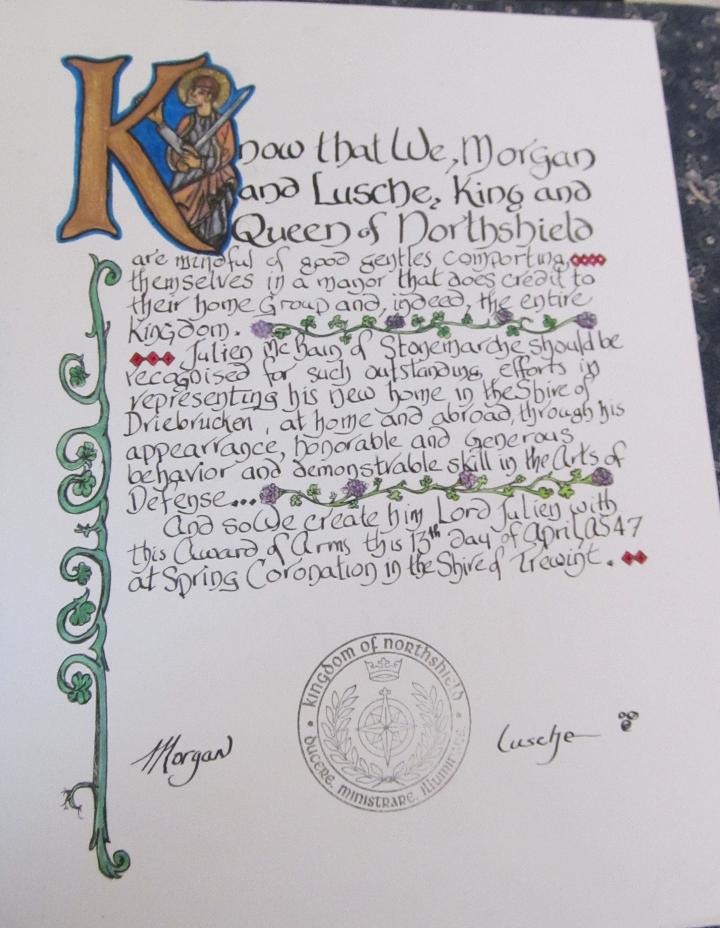 Know that We, Morgan
and Lusche, King and
Queen of Northshield
are mindful of good gentles comporting
themselves in a manor that does credit to
their home Group and, indeed, the entire
Kingdom.
Julien McBain of Stonemarche should be
recognised for such outstanding efforts in
representing his new home in the Shire of
Driebrucken, at home and abroad, through his
appearrance, honorable and generous
behavior and demonstrable skill in the Arts of
Defense...
And so We create him Lord Julien with
this Award of Arms this 13th Day of April AS 47
at Spring Coronation in the Shire of Trewint.
Kingdom of Northshield
Ducere, Ministrare, Illuminare
Morgan
Lusche